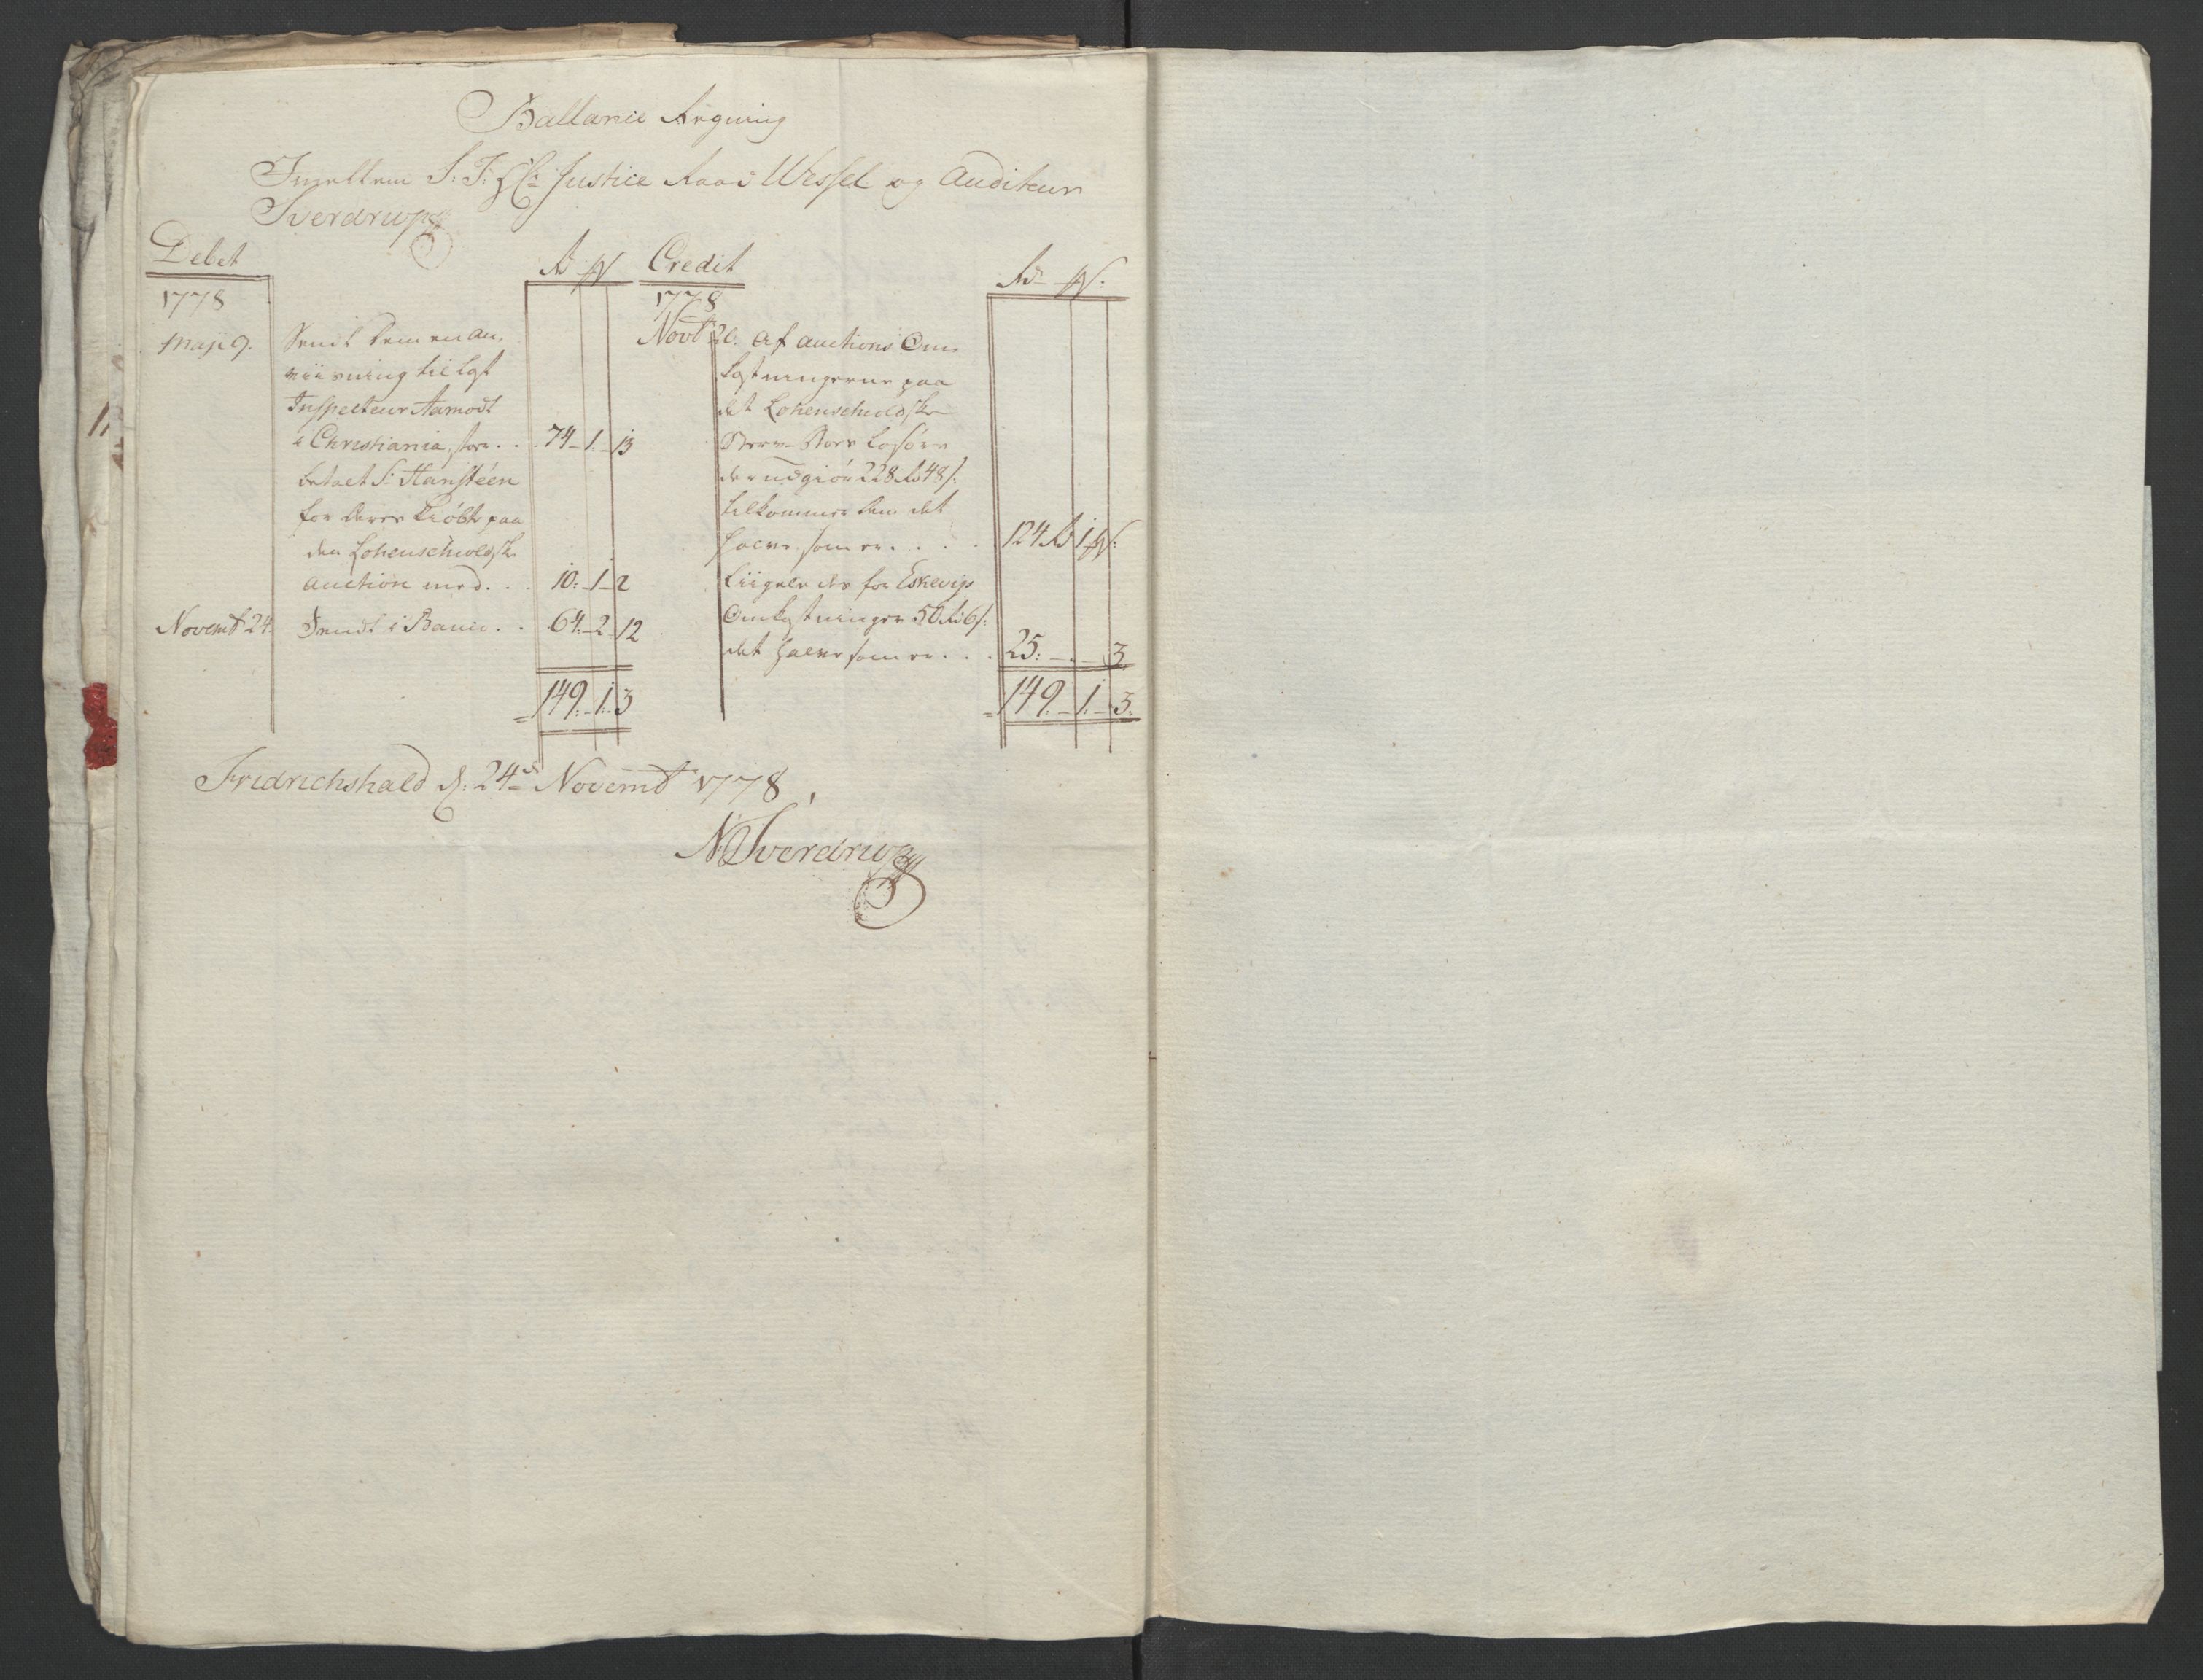 Ballance Regning
Imellem S: T: Hr: Justice Raad Wessel og Auditeur
Sverdrup
Debet
Rd
1778
Maji 9. Sendt Dem en an-
viisning til
Inspecteur Aamodt
i Christiania, stor . . 74 - 1. - 13
betalt Sr. Hansteen
for Deres Kiøb paa
den Lohenschioldske
Auction med . . . 10: - 1 - 2
Novembr 24. Sendt i Banco . . 64. - 2 - 12
= 149. - 1. - 3
Credit
Rd
1778
Novbr 20. Af Auctions Om-
kostningerne paa
det Lohenschioldske
Løsøre
der udgiør 228 Rd 48 s:
tilkommer Dem det
halve som er . . . . 124 Rd 1
Liigeledes for Eskevigs
Omkostninger 50 Rd 6 s:
det halve som er . . . 25: - . - 3.
= 149. - 1. - 3.
Fridrichshald d: 24de Novembr 1778.
N Sverdrup